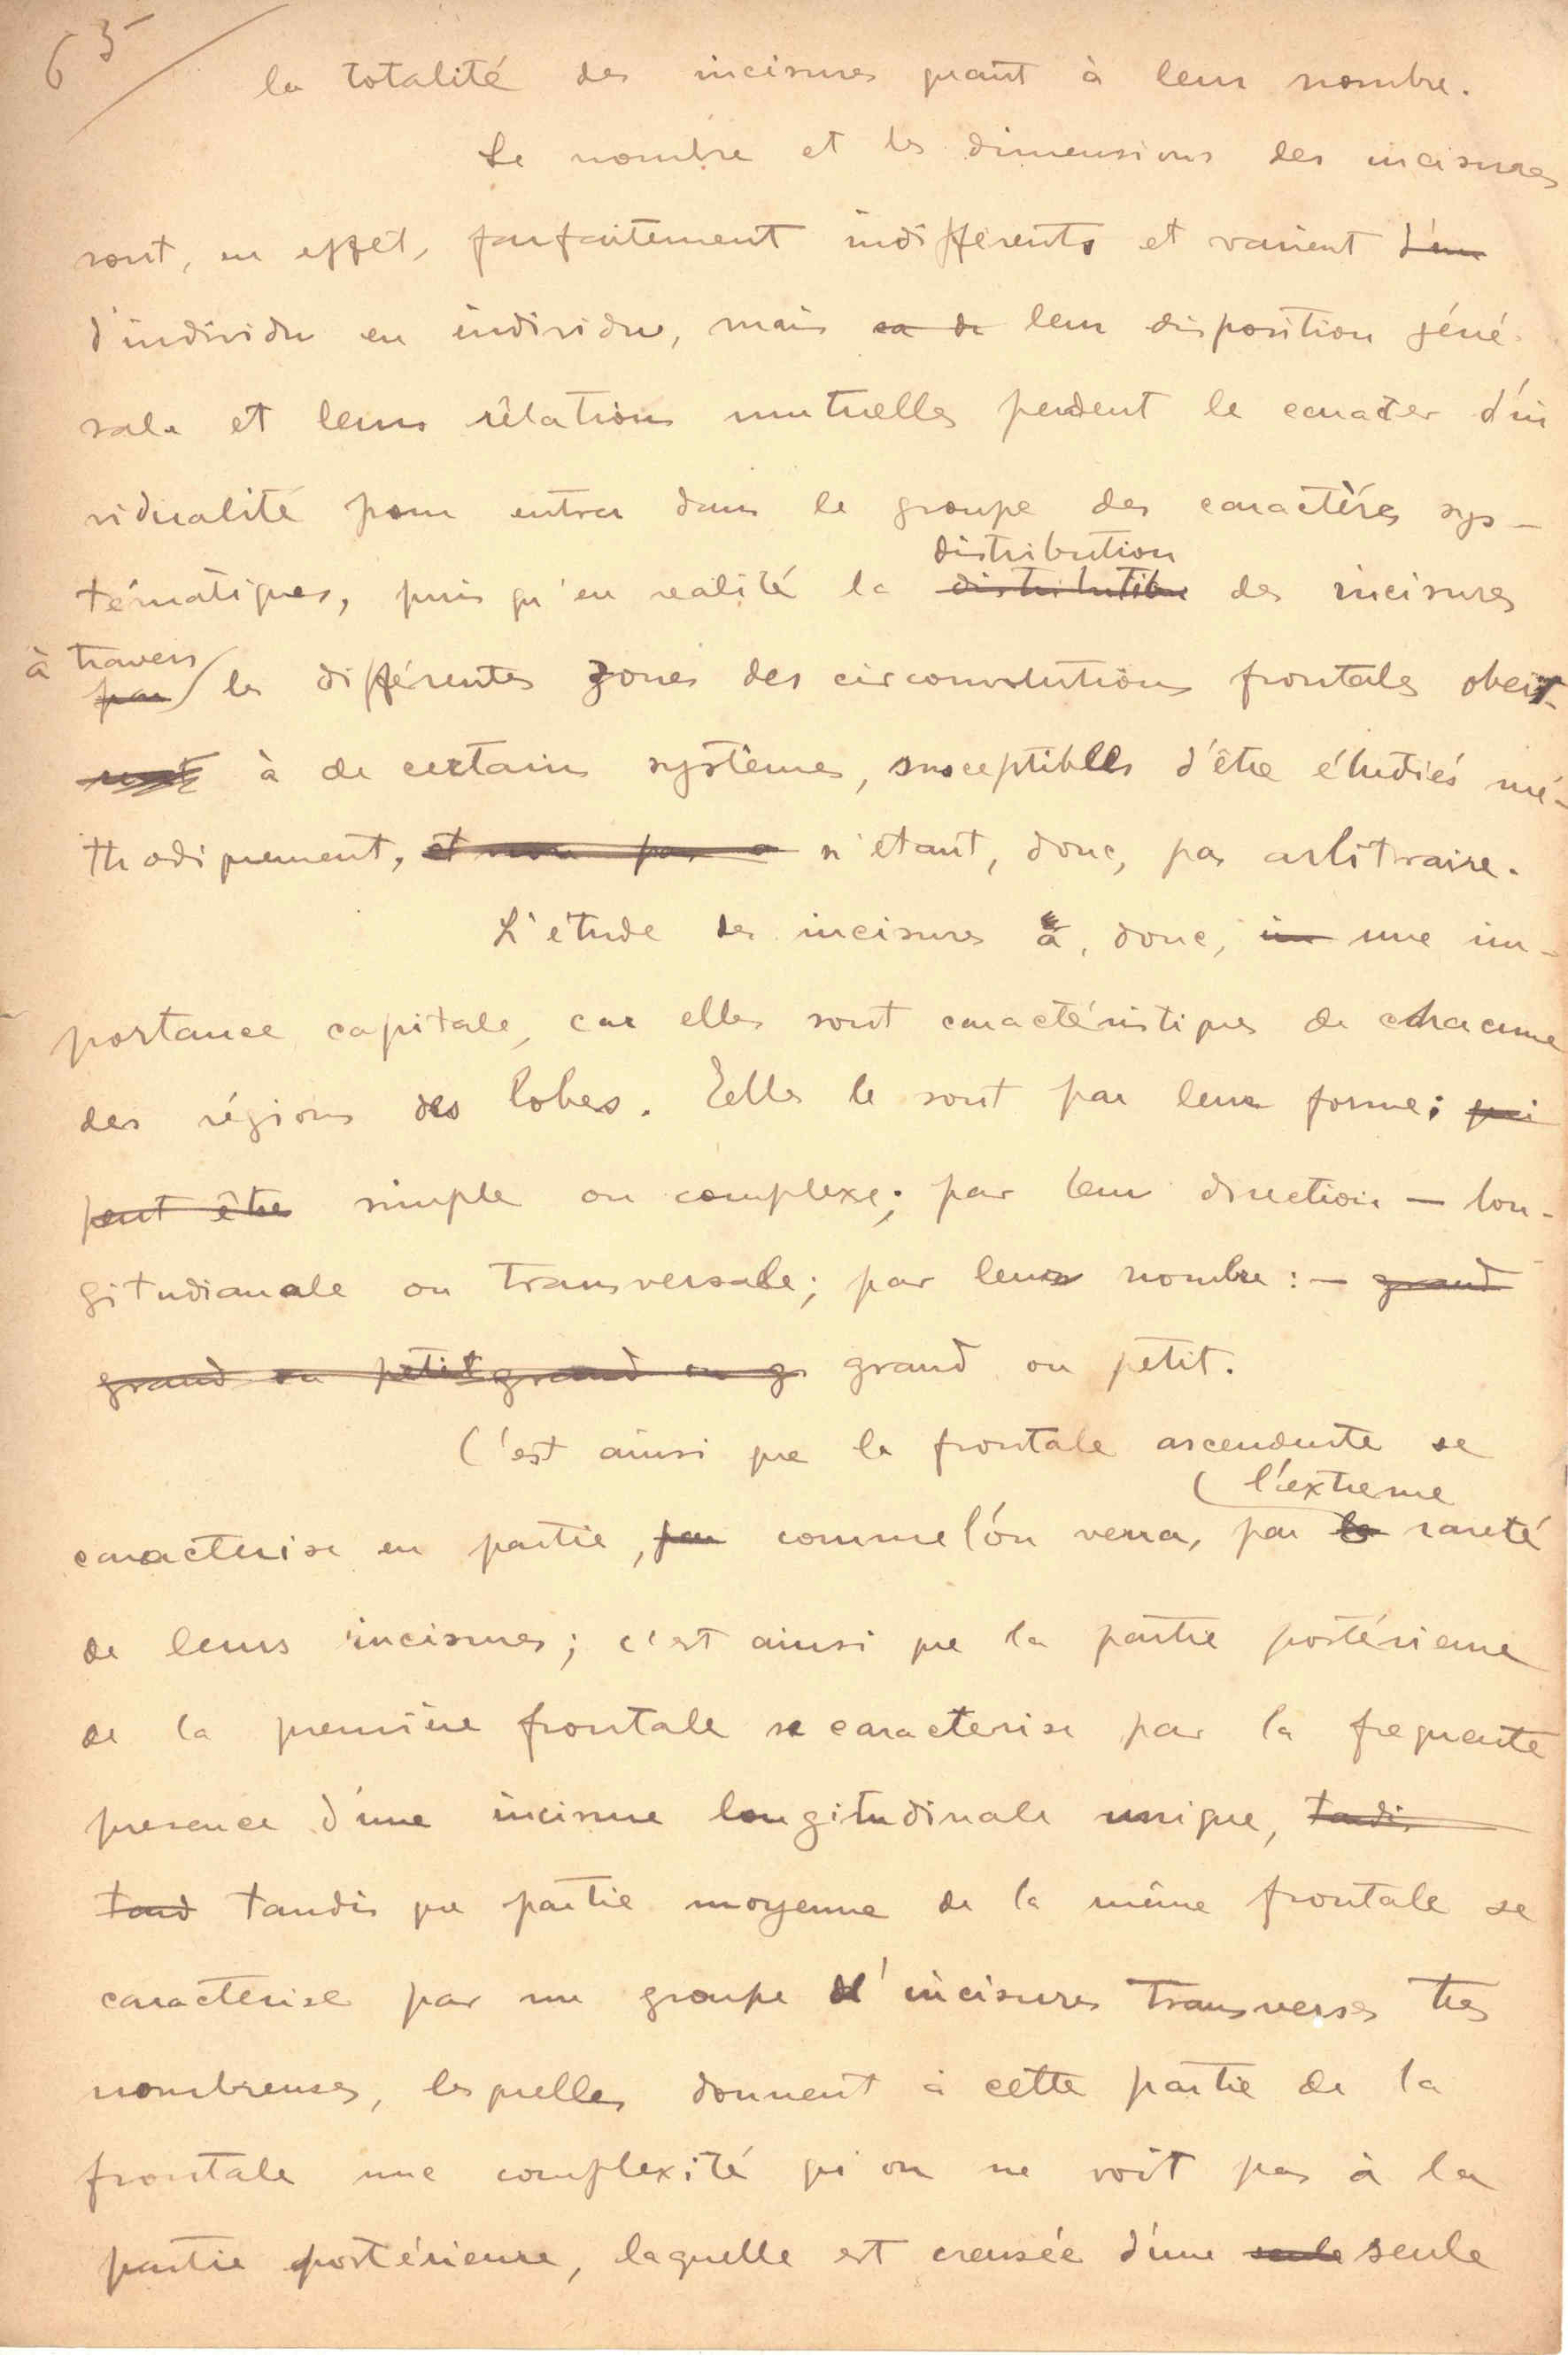 65
la totalité des incisures quant à leur nombre.
Le nombre et les dimensions des incisures
sont, en effet, parfaitement indifférents et varient d'un
d'individu en individu, mais sa de leur disposition géné-
rale et leurs rélations mutuelles perdent le caracter d'in
vidualité pour entrer dans le groupe des caractères sys-
tématiques, puis qu'en realité la distribution des incisures
distribution
à travers
par les différentes zones des circonvolutions frontales obeis-
à de certains systèmes, susceptibles d'être étudiés mé-
thodiquement, et non pas a n'étant, donc, pas arbitraire.
L'étude des incisures a, donc, un une im-
portance capitale, car elles sont caractéristiques de chacune
des régions des lobes. Elles le sont par leur forme; qui
peut être simple ou complexe; par leur direction — lon-
gitudianale ou transversale; par leur nombre: — grand
grand ou petit grand ou g grand ou petit.
C'est ainsi que la frontale ascendante se
l'extreme
caracterise en partie, par comme l'ón verra, par la rareté
de leurs incisures; c'est ainsi que la partie postérieure
de la première frontale se caracterise par la frequente
presence d'une incisure longitudinale unique, tandis
tand tandis que partie moyenne de la même frontale se
caracterise par un groupe d'incisures transverses tres
nombreuses, lesquelles donnent à cette partie de la
frontale une complexité qu'on ne voit pas à la
partie postérieure, laquelle est creusée d'une seule seule